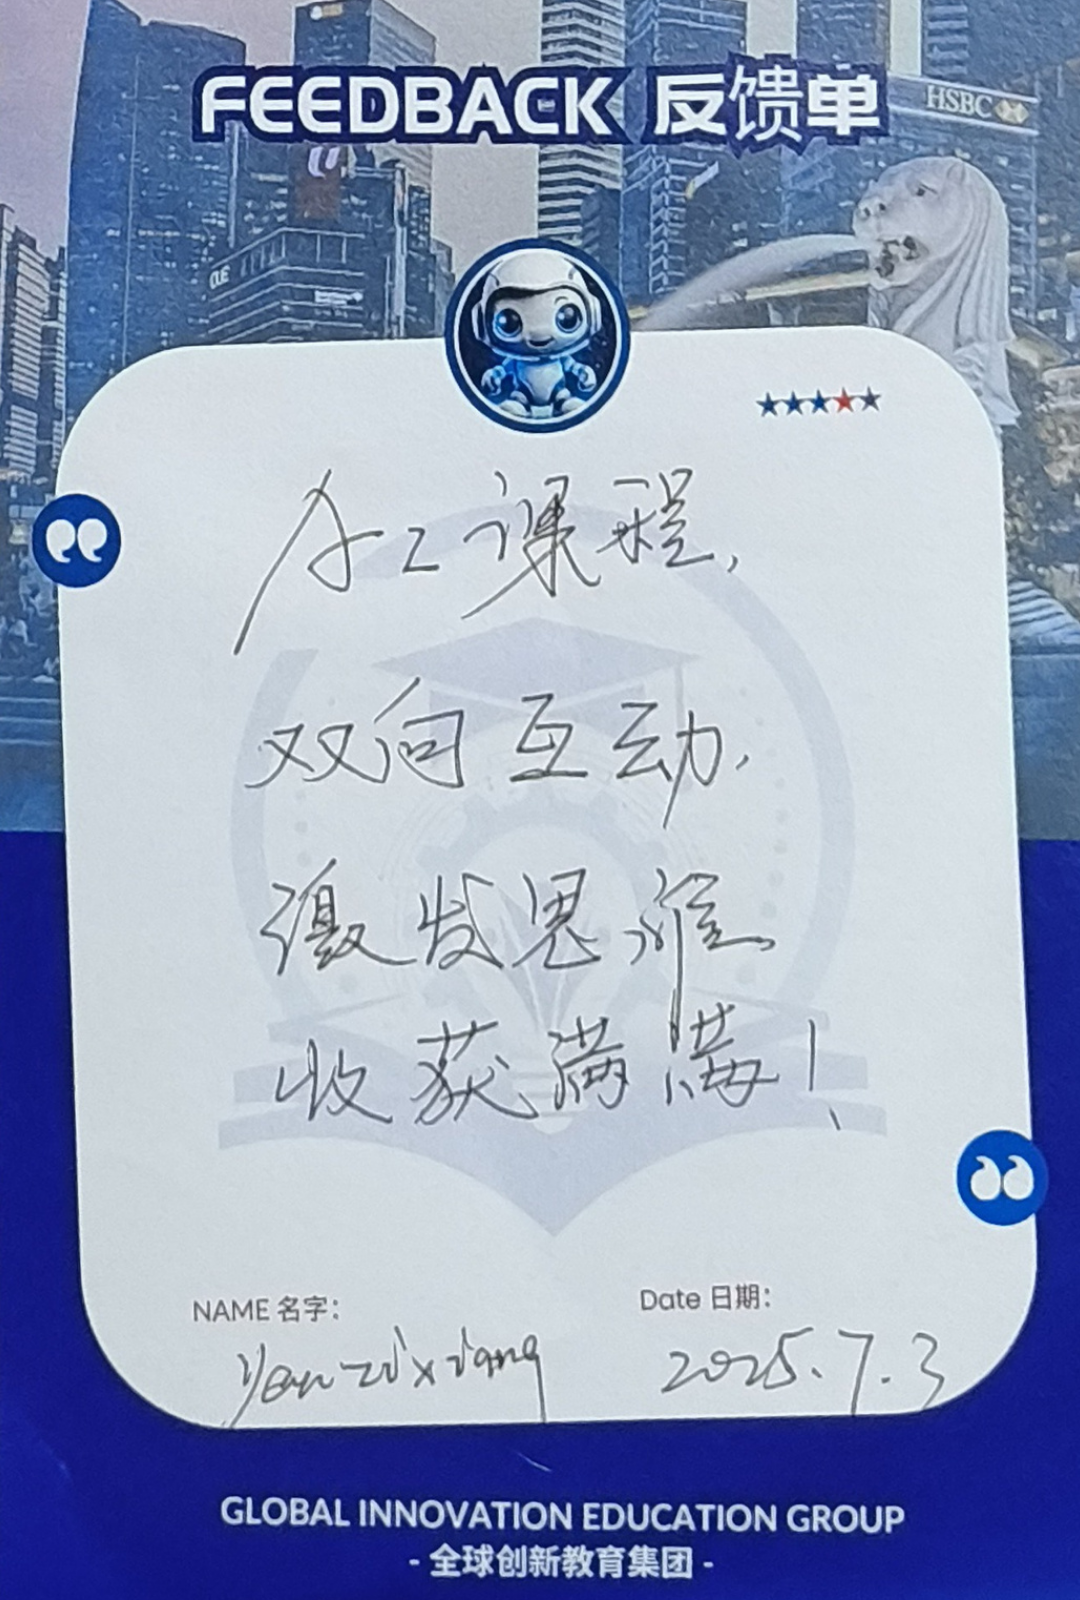 FEEDBACK 反馈单
HSBC
CUE
AI课程,
双向互动.
激发思维
收获满满!
NAME 名字:
Date 日期:
Yan zi xiang
2025.7.3
GLOBAL INNOVATION EDUCATION GROUP
- 全球创新教育集团 -